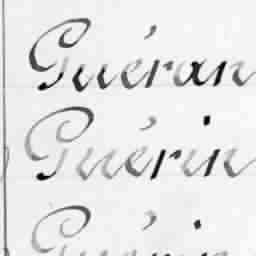 Guéran
Guérin